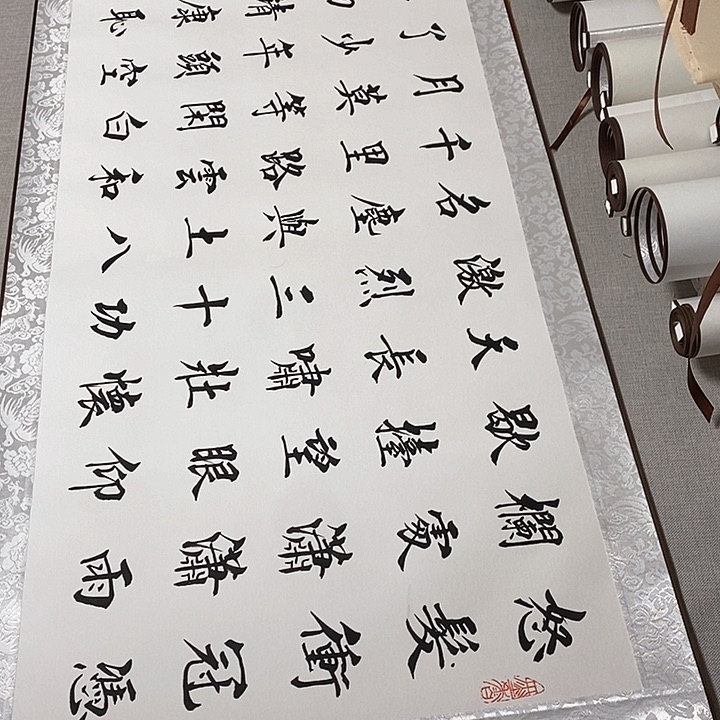 怒髮衝冠憑
欄處瀟瀟雨
歇擡望眼仰
天長嘯壯懷
激烈三十功
名塵與土八
千里路雲和
月莫等閑白
了少年頭空
靖康恥